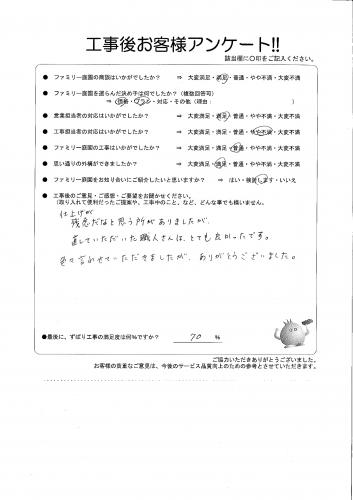 工事後お客様アンケート!!
該当欄に○印をご記入ください。
● ファミリー庭園の商談はいかがでしたか? ⇒ 大変満足・満足・普通・やや不満・大変不満
● ファミリー庭園を選らんだ決め手は何でしたか?(複数回答可)
⇒ 価格・プラン・対応・その他(理由: )
● 営業担当者の対応はいかがでしたか? ⇒ 大変満足・満足・普通・やや不満・大変不満
● 工事担当者の対応はいかがでしたか? ⇒ 大変満足・満足・普通・やや不満・大変不満
● ファミリー庭園の工事はいかがでしたか? ⇒ 大変満足・満足・普通・やや不満・大変不満
● 思い通りの外構ができましたか? ⇒ 大変満足・満足・普通・やや不満・大変不満
● ファミリー庭園をお知り合いにご紹介したいと思いますか? ⇒ はい・検討します・いいえ
● 工事後のご意見・ご感想・ご要望をお聞かせください。
(取り入れて便利だったご提案や、工事中のこと、など、どんな事でも構いません。
仕上げが
残念だなと思う所がありましたが、
直していただいた職人さんは、とても良かったです。
色々言わせていただきましたが、ありがとうございました。
●最後に、ずばり工事の満足度は何%ですか? 70 %
ご協力いただきありがとうございました。
お客様の貴重なご意見は、今後のサービス品質向上のための参考とさせていただきます。